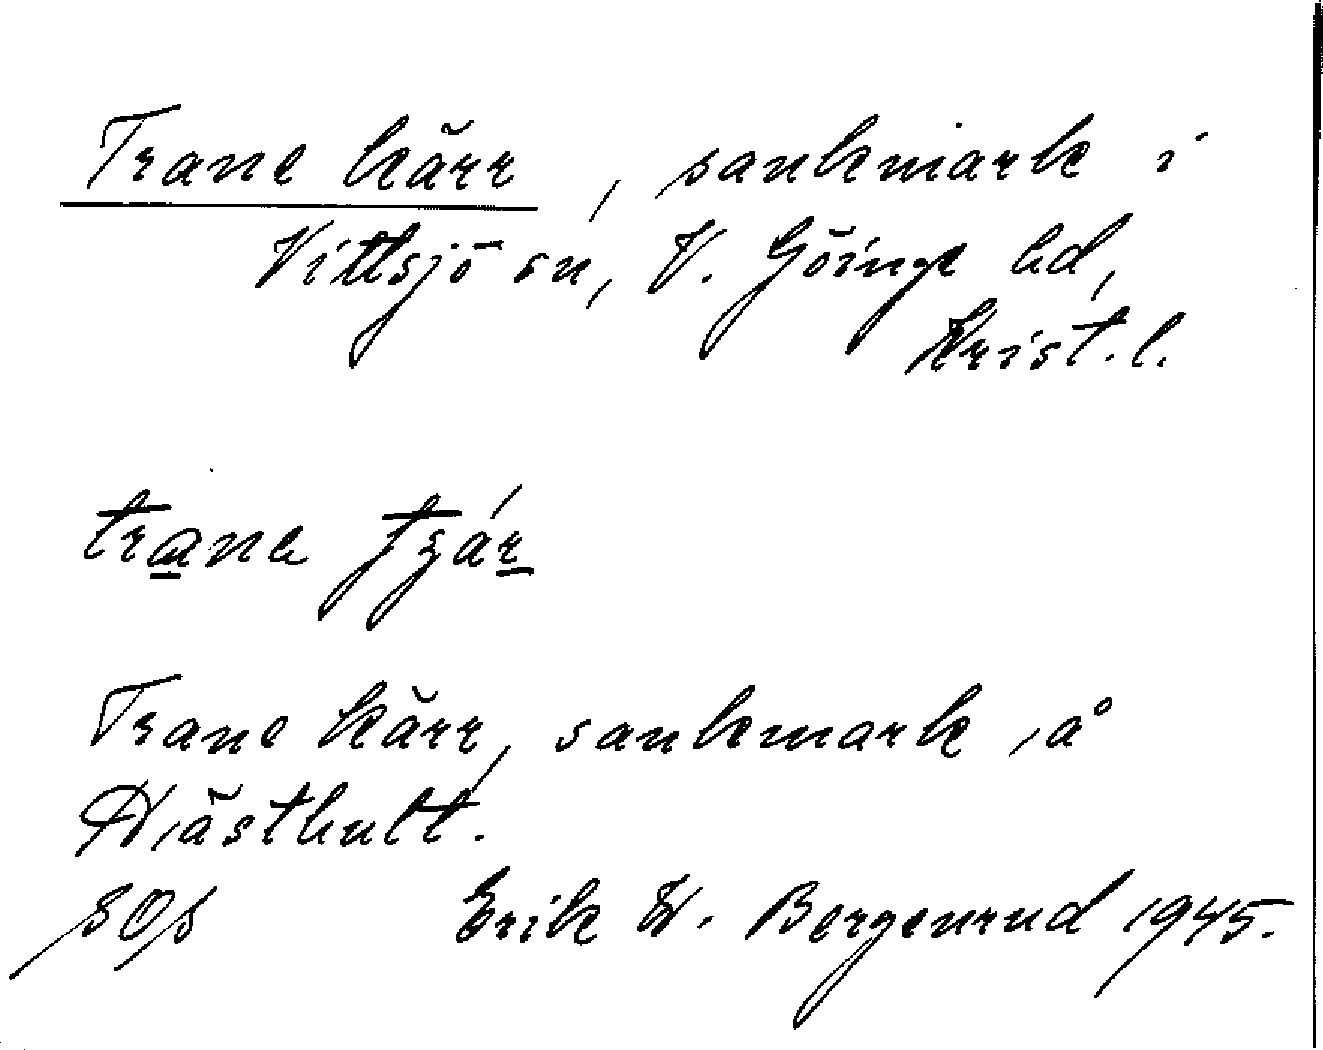 Trane kärr, sankmark i
Vittsjö sn, V. Göinge hd,
Krist. l.
trana
Trane kärr, sankmark å
Hästhult.
Erik W. Bergenrud 1945.